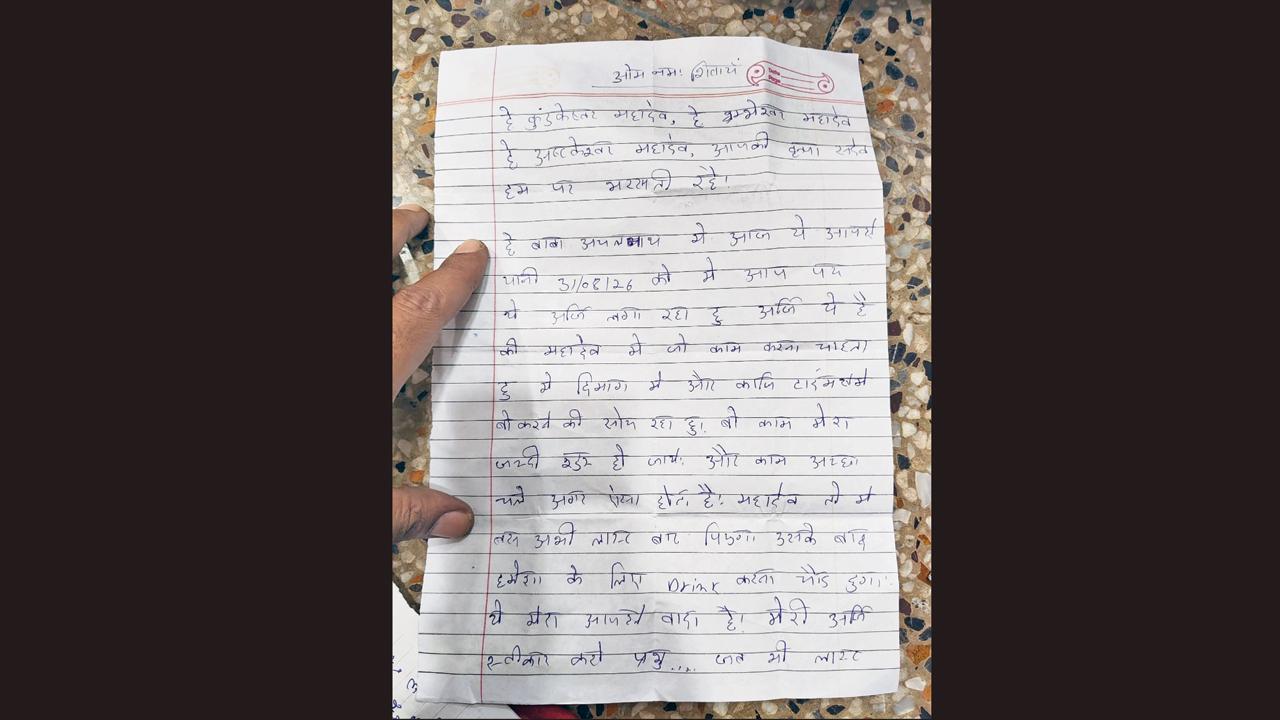 ओम नमः शिवायं
हे कुंडकेश्वर महादेव, हे महादेव
हे महादेव, आपकी कृपा सदैव
हम पर बरसती रहे।
हे बाबा में आज ये आपसे
यानी 31/08/26 को मे आप पर
ये अर्जि लगा रहा हु अर्जि ये है
की महादेव मे जो काम करना चाहता
हु मे दिमाग मे और काफि
वो करने की सोच रहा हु। वो काम मेरा
जल्दी हो जाये। और काम अच्छा
चले अगर ऐसा होता है। महादेव तो मे
बस अभी लास्ट बार पिऊगा उसके बाद
हमेशा के लिए Drink करना छोड दुगा।
ये मेरा आपसे वादा है। मेरी अर्जि
स्वीकार करो प्रभु.... जब भी लास्ट